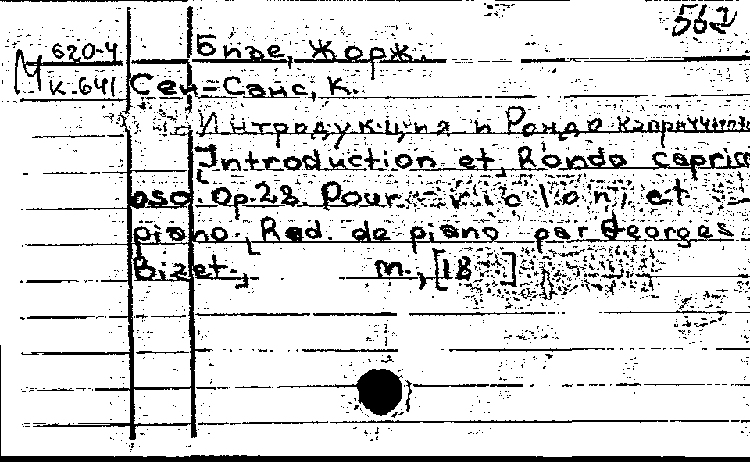 562
М 620-4
К-641
Бизе, Жорж.
Сен-Санс, К.
Интродукция и Рондо каприччиозо
[Introduction et Rondo capricci
oso. Op. 28. Pour violon et
piano., Red. de piano par Georges
Bizet.,   m., [18   ]